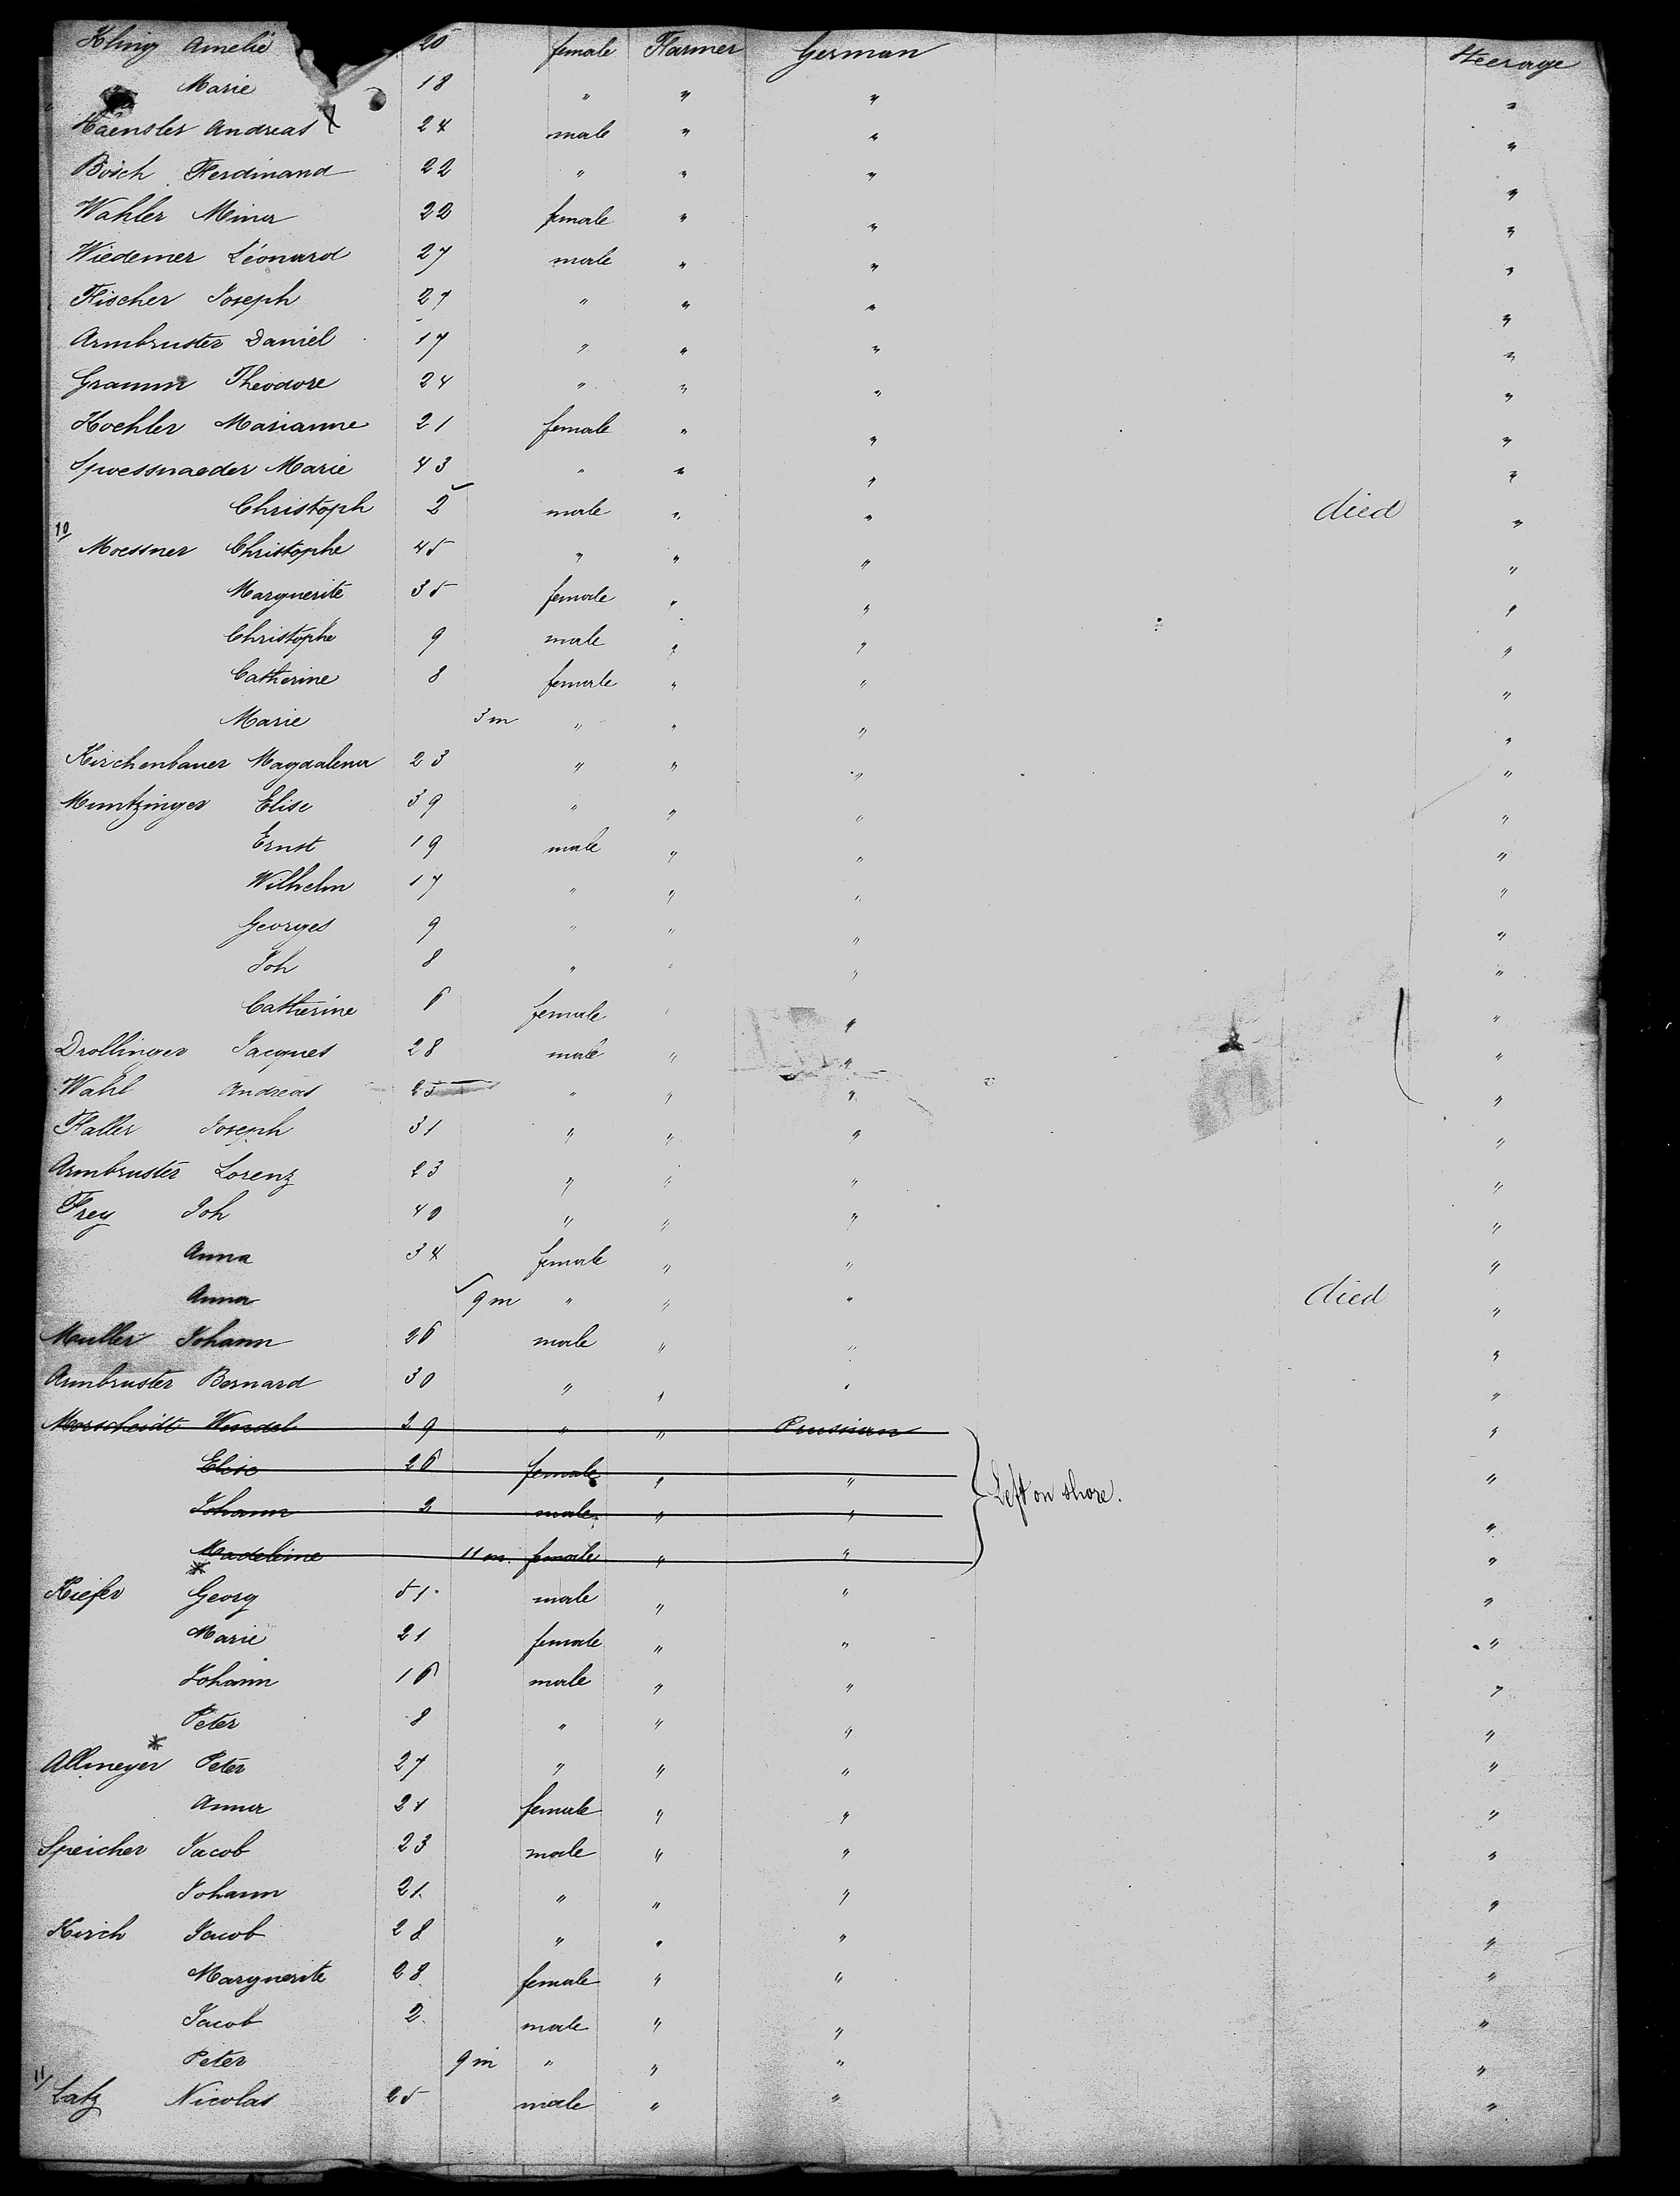 Kling Amelie 20 female Farmer German Steerage
Marie 18 " " " "
Haensler Andreas 24 male " " "
Bosch Ferdinand 22 " " " "
Wahler Mina 22 female " " "
Wiedemer Léonard 27 male " " "
Fischer Joseph 27 " " " "
Armbruster Daniel 17 " " " "
Gramm Theodore 24 " " " "
Koehler Marianne 21 female " " "
Marie 43 " " " "
Christoph 2 male " " died "
10/ Moessner Christophe 45 " " " "
Marguerite 35 female " " "
Christophe 9 male " " "
Catherine 8 female " " "
Marie 3 m " " " "
Kirchenbauer Magdalena 23 " " " "
Muntzinger Elise 39 " " " "
Ernst 19 male " " "
Wilhelm 17 " " " "
Georges 9 " " " "
Joh 8 " " " "
Catherine 6 female " " "
Drollinger Jacques 28 male " " "
Wahl Andreas 25 " " " "
Haller Joseph 31 " " " "
Armbruster Lorenz 23 " " " "
Frey Joh 40 " " " "
Anna 34 female " " "
Anna 9 m " " " died "
Muller Johann 26 male " " "
Armbruster Bernard 30 " " " "
Morscheidt Wendel 29 " " Prussian "
Elise 26 female " " "
Left on shore.
Johann 2 male " " "
Madeleine 11 m. female " " "
Kiefer Georg 51 male " " "
Marie 21 female " " "
Johann 16 male " " "
Peter 8 " " " "
Allmeyer Peter 27 " " " "
Anna 21 female " " "
Speicher Jacob 23 male " " "
Johann 21 " " " "
Kirch Jacob 28 " " " "
Marguerite 28 female " " "
Jacob 2 male " " "
Peter 9 m " " " "
11/ Latz Nicolas 25 male " " "